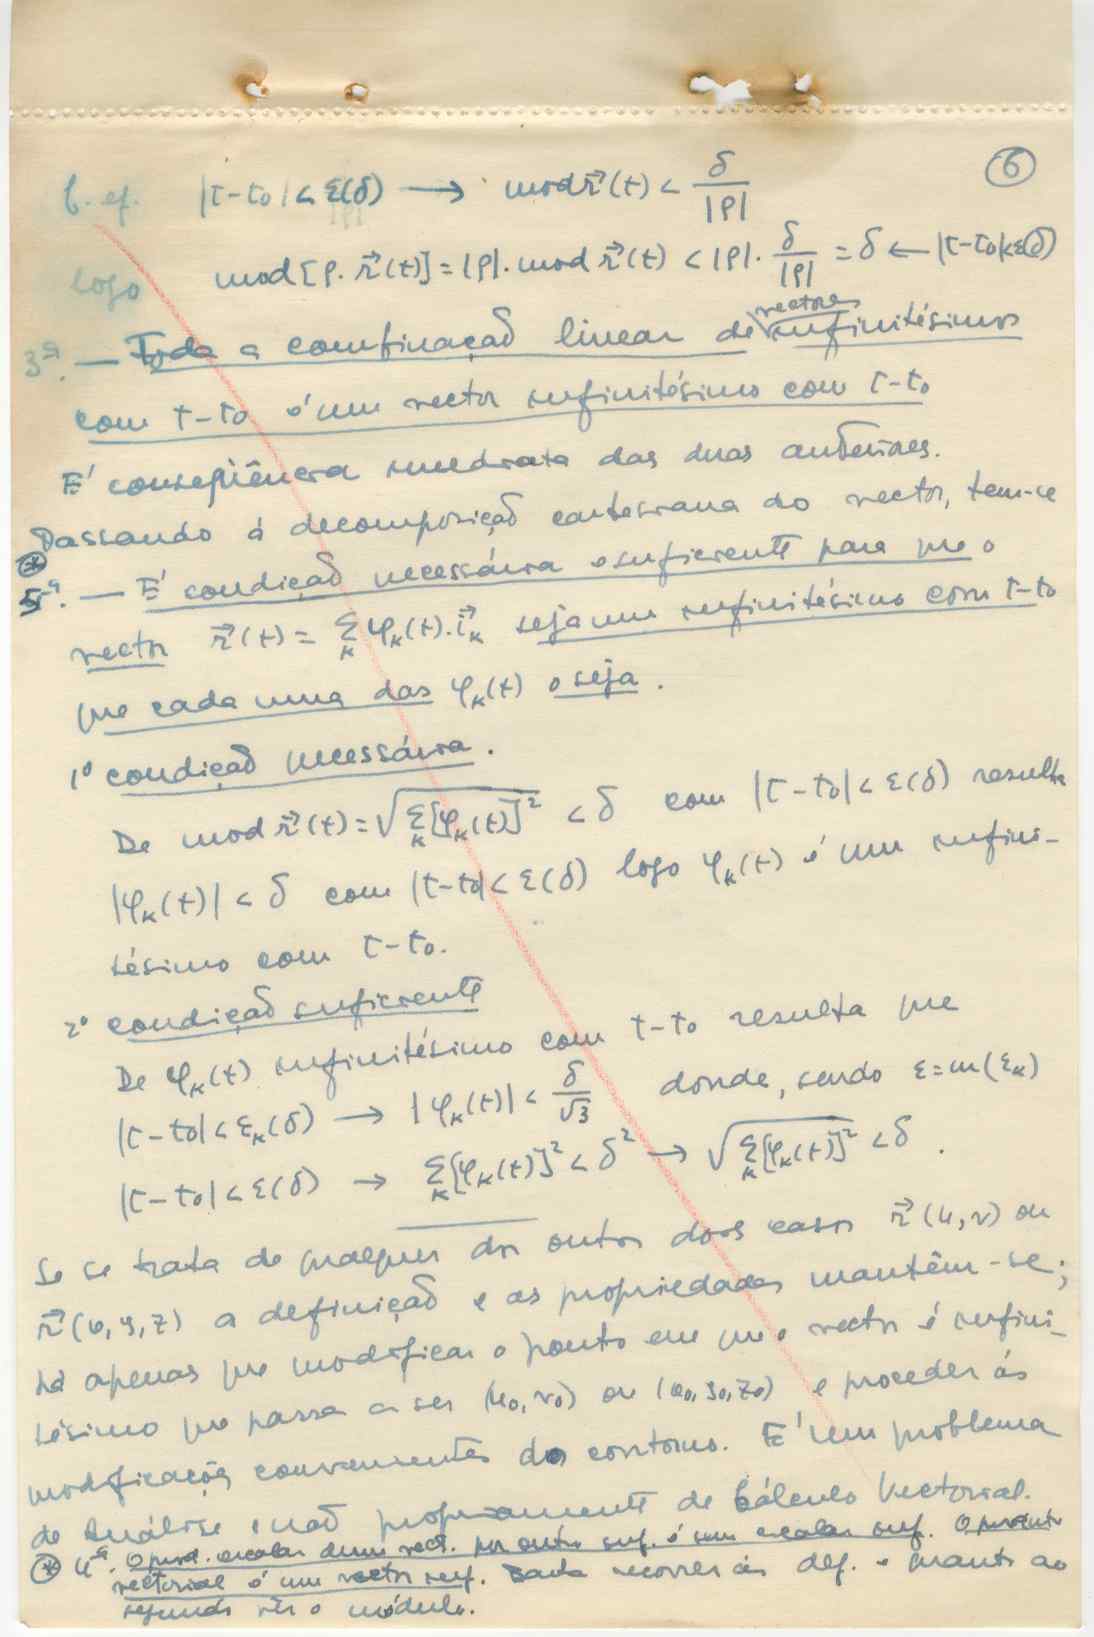 6
b. ef. |t-t₀| < ε(δ) → mod r⃗(t) < δ/|ρ|
logo mod [ρ. r⃗(t)] = |ρ|. mod r⃗(t) < |ρ|. δ/|ρ| = δ ← |t-t₀| < ε(δ)
3ª. — Toda a combinação linear de vectores infinitésimos
com t-t₀ é um vector infinitésimo com t-t₀
E' conseqüência imediata das duas anteriores.
Passando á decomposição cartesiana do vector, tem-se
⊛
5ª. — E' condição necessária e suficiente para que o
vector r⃗(t) = Σₖ φₖ(t). i⃗ₖ seja um infinitésimo com t-t₀
que cada uma das φₖ(t) o seja.
1º condição necessária.
De mod r⃗(t) = √Σₖ[φₖ(t)]² < δ com |t-t₀| < ε(δ) resulta
|φₖ(t)| < δ com |t-t₀| < ε(δ) logo φₖ(t) é um infini-
tésimo com t-t₀.
2º condição suficiente
De φₖ(t) infinitésimo com t-t₀ resulta que
|t-t₀| < εₖ(δ) → |φₖ(t)| < δ/√3 donde, sendo ε = m(εₖ)
|t-t₀| < ε(δ) → Σₖ[φₖ(t)]² < δ² → √Σₖ[φₖ(t)]² < δ.
Se se trata de qualquer dos outros dois casos r⃗(u,v) ou
r⃗(x,y,z) a definição e as propriedades mantêm-se;
há apenas que modificar o ponto em que o vector é infini-
tésimo que passa a ser (u₀,v₀) ou (x₀,y₀,z₀) e proceder ás
modificações convenientes do contorno. E' um problema
de Análise e não propriamente de Cálculo Vectorial.
⊛ 4ª. O prod. escalar dum vect. por outro inf. é um escalar inf. O produto
vectorial é um vector inf. Basta recorrer ás def. e quanto ao
segundo vêr o módulo.